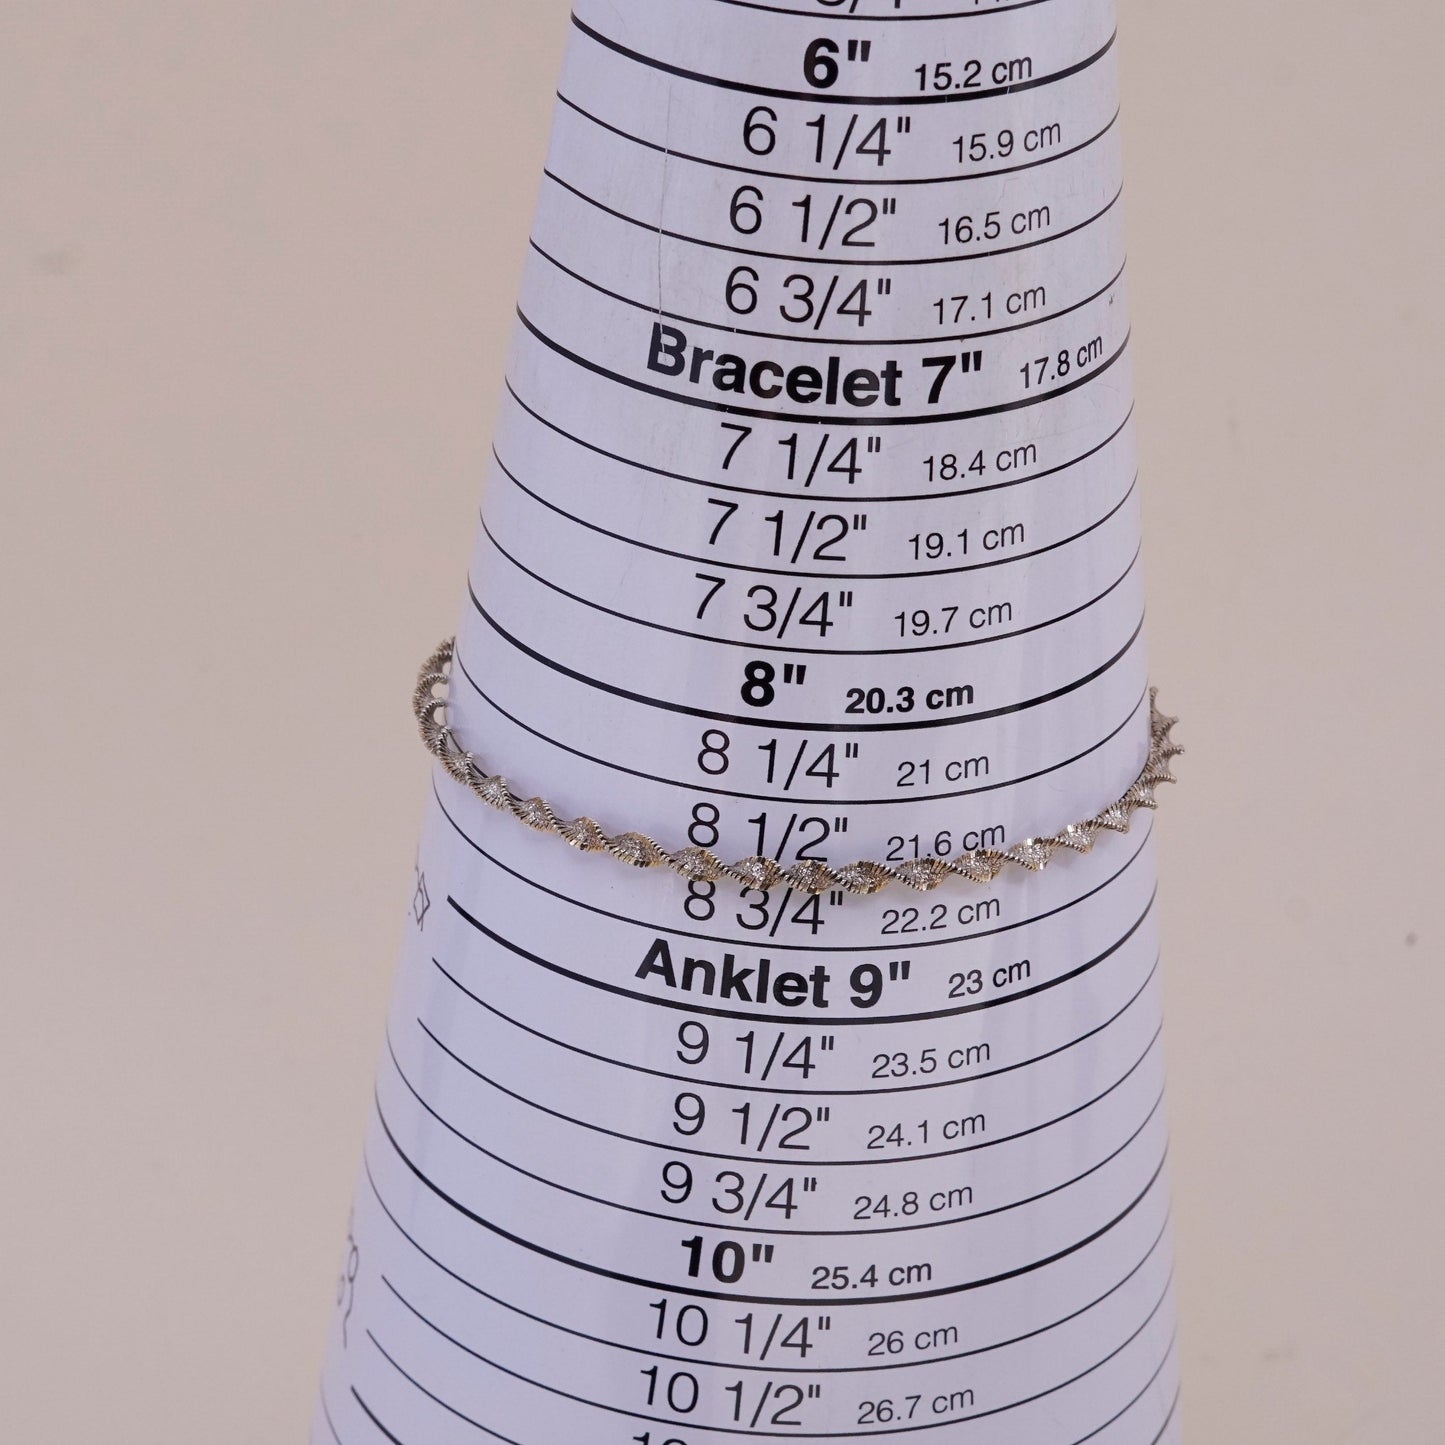 6" 15.2 cm
6 1/4" 15.9 cm
6 1/2" 16.5 cm
6 3/4" 17.1 cm
Bracelet 7" 17.8 cm
7 1/4" 18.4 cm
7 1/2" 19.1 cm
7 3/4" 19.7 cm
8" 20.3 cm
8 1/4" 21 cm
8 1/2" 21.6 cm
8 3/4" 22.2 cm
Anklet 9" 23 cm
9 1/4" 23.5 cm
9 1/2" 24.1 cm
9 3/4" 24.8 cm
10" 25.4 cm
10 1/4" 26 cm
10 1/2" 26.7 cm